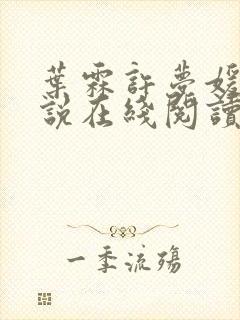 葉霖許夢媛
說在綫閱讀
一季流殤